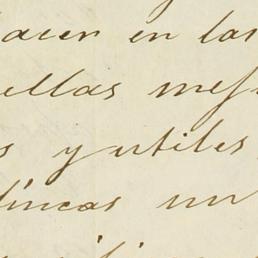 hacer en las
ellas mej
s y utiles
líneas un